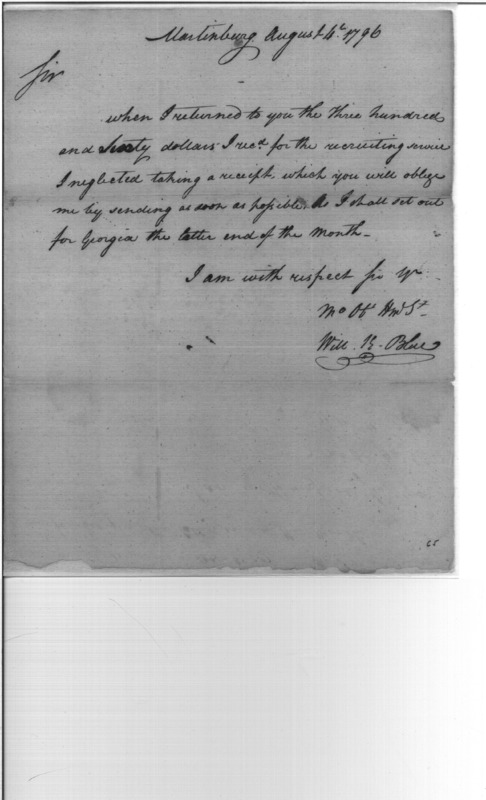 Martinburg August 4t. 1796
Sir
when I returned to you the three hundred
and Sixty dollars I recd. for the recruiting service
I neglected taking a receipt which you will oblege
me by sending as soon as possible. As I shall set out
for Georgia the latter end of the Month-
I am with respect sir yr.
Mo Ob Hml St.
Will. K. Blue